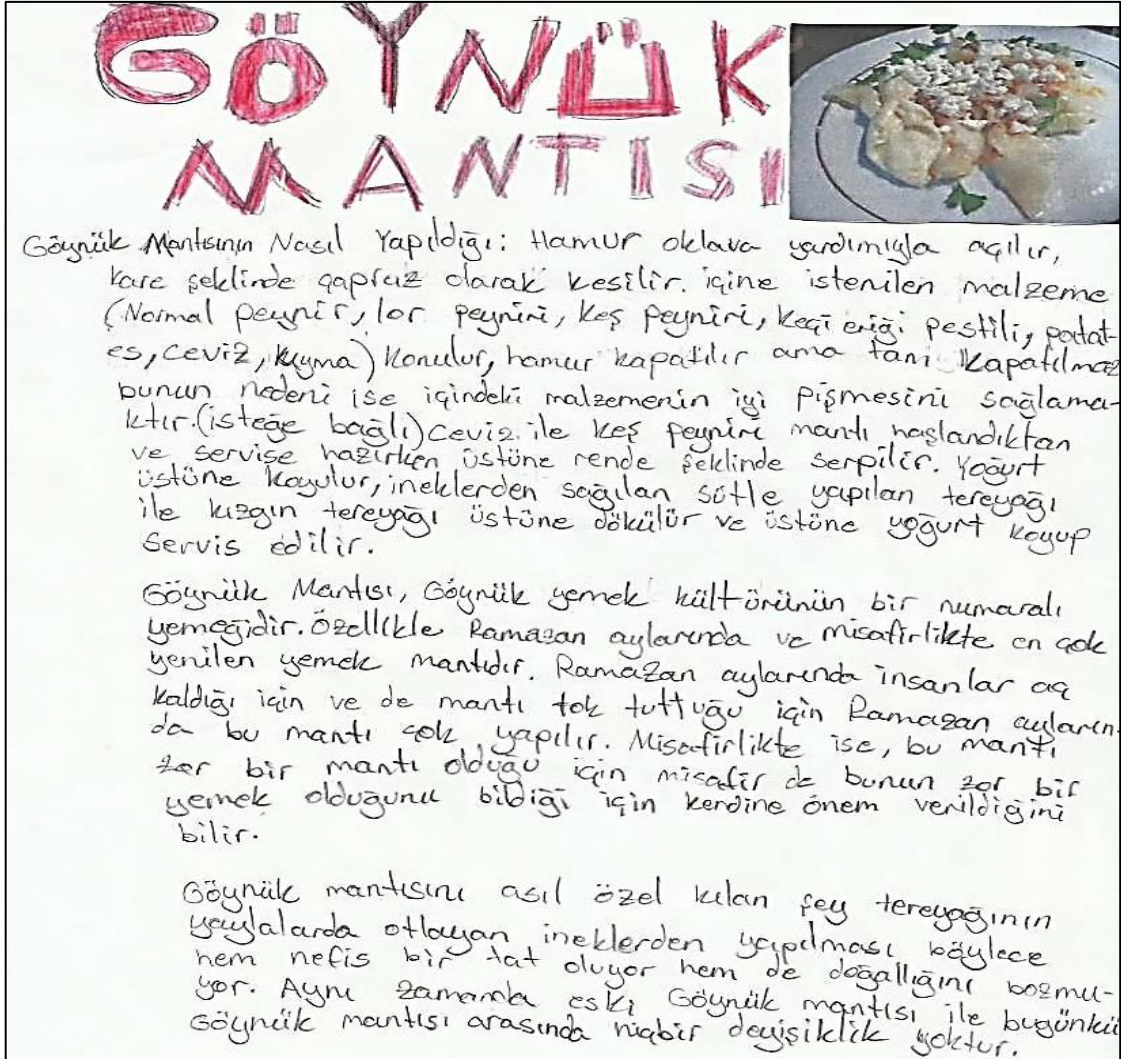 GÖYNÜK
MANTISI
Göynük Mantısının Nasıl Yapıldığı: Hamur oklava yardımıyla açılır,
kare şeklinde çapraz olarak kesilir. içine istenilen malzeme
(Normal peynir, lor peyniri, keş peyniri, keçi eriği pestili, patat-
es, ceviz, kıyma) konulur, hamur kapatılır ama tam kapatılmaz
bunun nedeni ise içindeki malzemenin iyi pişmesini sağlama-
ktır. (isteğe bağlı) ceviz ile keş peyniri mantı haşlandıktan
ve servise hazırken üstüne rende şeklinde serpilir. Yoğurt
üstüne koyulur, ineklerden sağılan sütle yapılan tereyağı
ile kızgın tereyağı üstüne dökülür ve üstüne yoğurt koyup
servis edilir.
Göynük Mantısı, Göynük yemek kültürünün bir numaralı
yemeğidir. Özellikle Ramazan aylarında ve misafirlikte en çok
yenilen yemek mantıdır. Ramazan aylarında insanlar aç
kaldığı için ve de mantı tok tuttuğu için Ramazan ayların-
da bu mantı çok yapılır. Misafirlikte ise, bu mantı
zor bir mantı olduğu için misafir de bunun zor bir
yemek olduğunu bildiği için kendine önem verildiğini
bilir.
Göynük mantısını asıl özel kılan şey tereyağının
yaylalarda otlayan ineklerden yapılması böylece
hem nefis bir tat oluyor hem de doğallığını bozmu-
yor. Aynı zamanda eski Göynük mantısı ile bugünkü
Göynük mantısı arasında hiçbir deyişiklik yoktur.